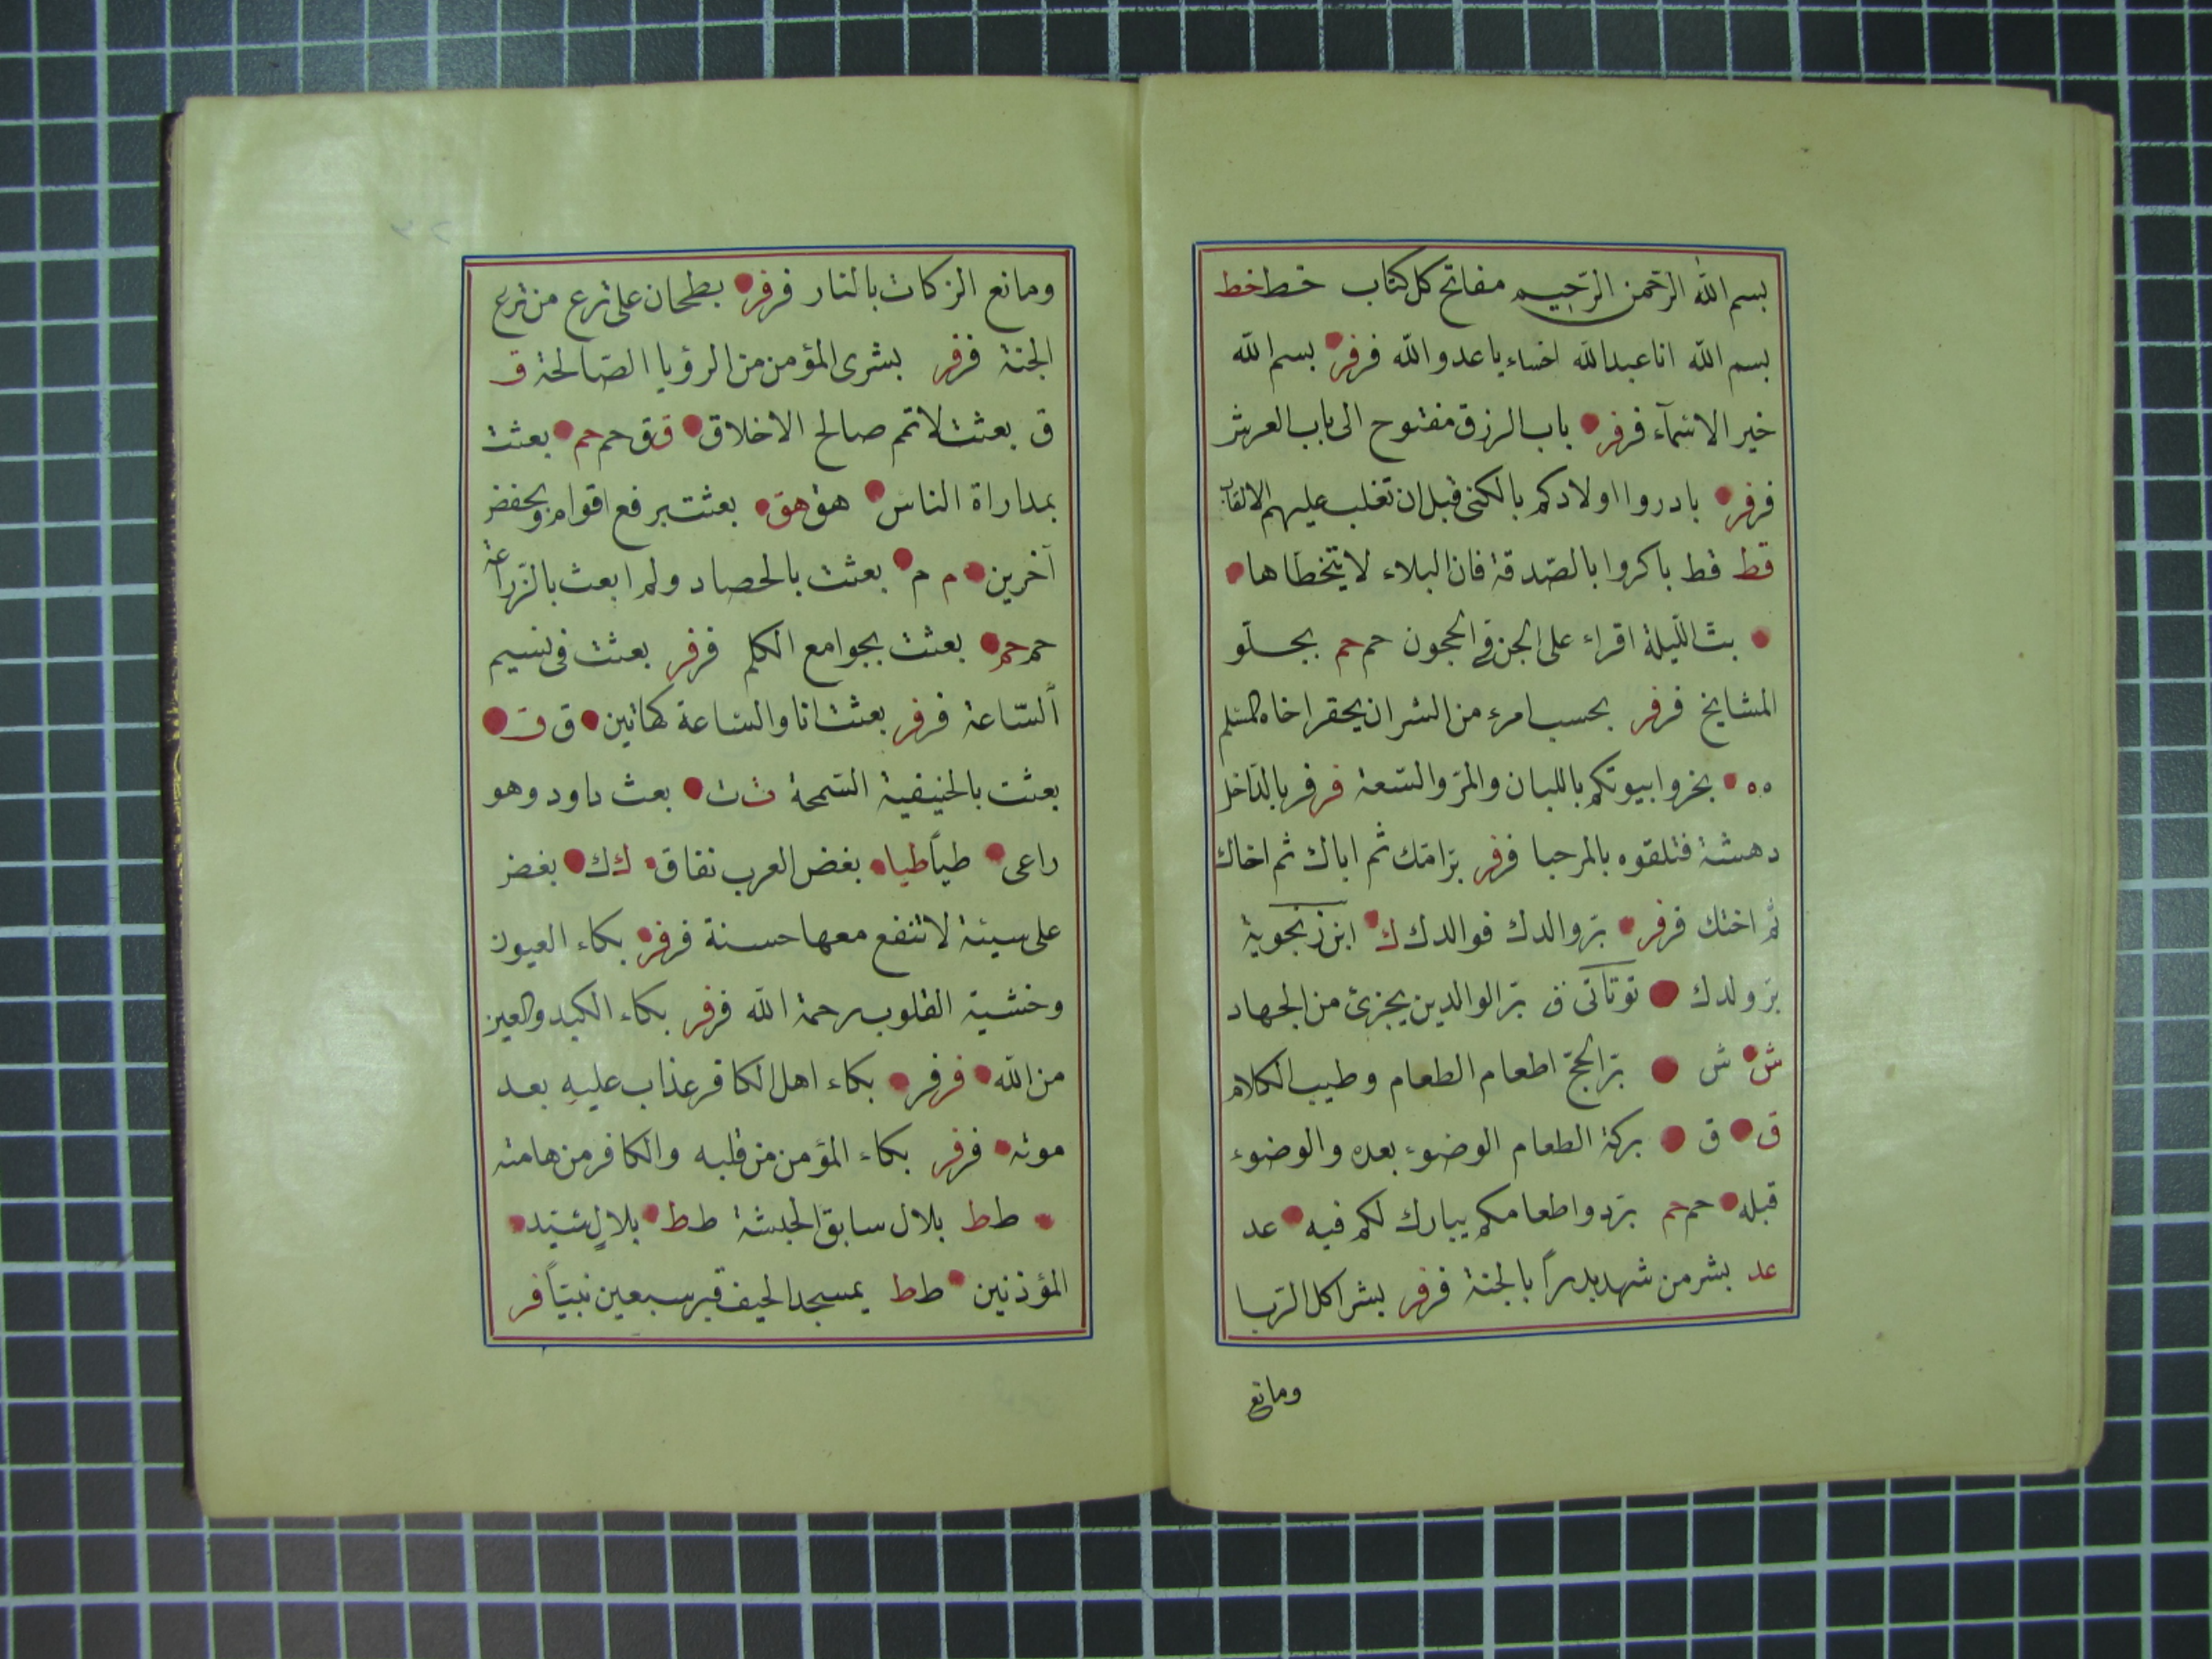 بسم الله الرحمن الرحيم مفاتح كل كتاب خط خط
بسم الله انا عبد الله اخساء يا عدو الله فر فر بسم الله
خير الاسمآء فر فر باب الرزق مفتوح الى باب العرش
فر فر بادروا اولادكم بالكنى قبل ان تغلب عليهم الالقاب
قط قط باكروا بالصّدقة فان البلاء لا يتخطاها
بتّ الليلة اقراء على الجن في الحجون حم حم بجلّو
المشايخ فر فر بحسب امرء من الشر ان يحقر اخاه المسلم
ه ه بخروا بيوتكم باللبان والمرّ والسّعة فر فر بالدّاخل
دهشة فتلقوه بالمرحبا فر فر برّ امّك ثم اباك ثم اخاك
ثم اختك فر فر برّ والدك فوالدك ك ك ابن زنجوية
برّ ولدك ق برّ الوالدين يجزئ من الجهاد
ش ش برّ الحجّ اطعام الطعام وطيب الكلام
ق ق بركة الطعام الوضوء بعده والوضوء
قبله حم حم برّدوا طعامكم يبارك لكم فيه عد
عد بشر من شهد بدراً بالجنة فر فر بشر اكل الربا
ومانع
ومانع الزكات بالنار فر فر بطحان على ترع من ترع
الجنة فر فر بشرى المؤمن من الرؤيا الصالحة ق
ق بعثت لاتمم صالح الاخلاق ق ق حم حم بعثت
بمداراة الناس هق هق بعثت برفع اقوام وبخفض
آخرين م م بعثت بالحصاد ولم ابعث بالزراعة
حم حم بعثت بجوامع الكلم فر فر بعثت فى نسيم
السّاعة فر فر بعثت انا والساعة كهاتين ق ق
بعثت بالحنيفية السّمحة ث ث بعث داود وهو
راعى طياً طيا بغض العرب نفاق ك ك بغض
على سيئة لا تنفع معها حسنة فر فر بكاء العيون
وخشية القلوب رحمة الله فر فر بكاء الكبد والعين
من الله فر فر بكاء اهل الكافر عذاب عليه بعد
موته فر فر بكاء المؤمن من قلبه والكافر من هامته
ط ط بلال سابق الحبشة ط ط بلال سيّد
المؤذنين ط ط بمسجد الخيف قبر سبعين نبيّاً فر